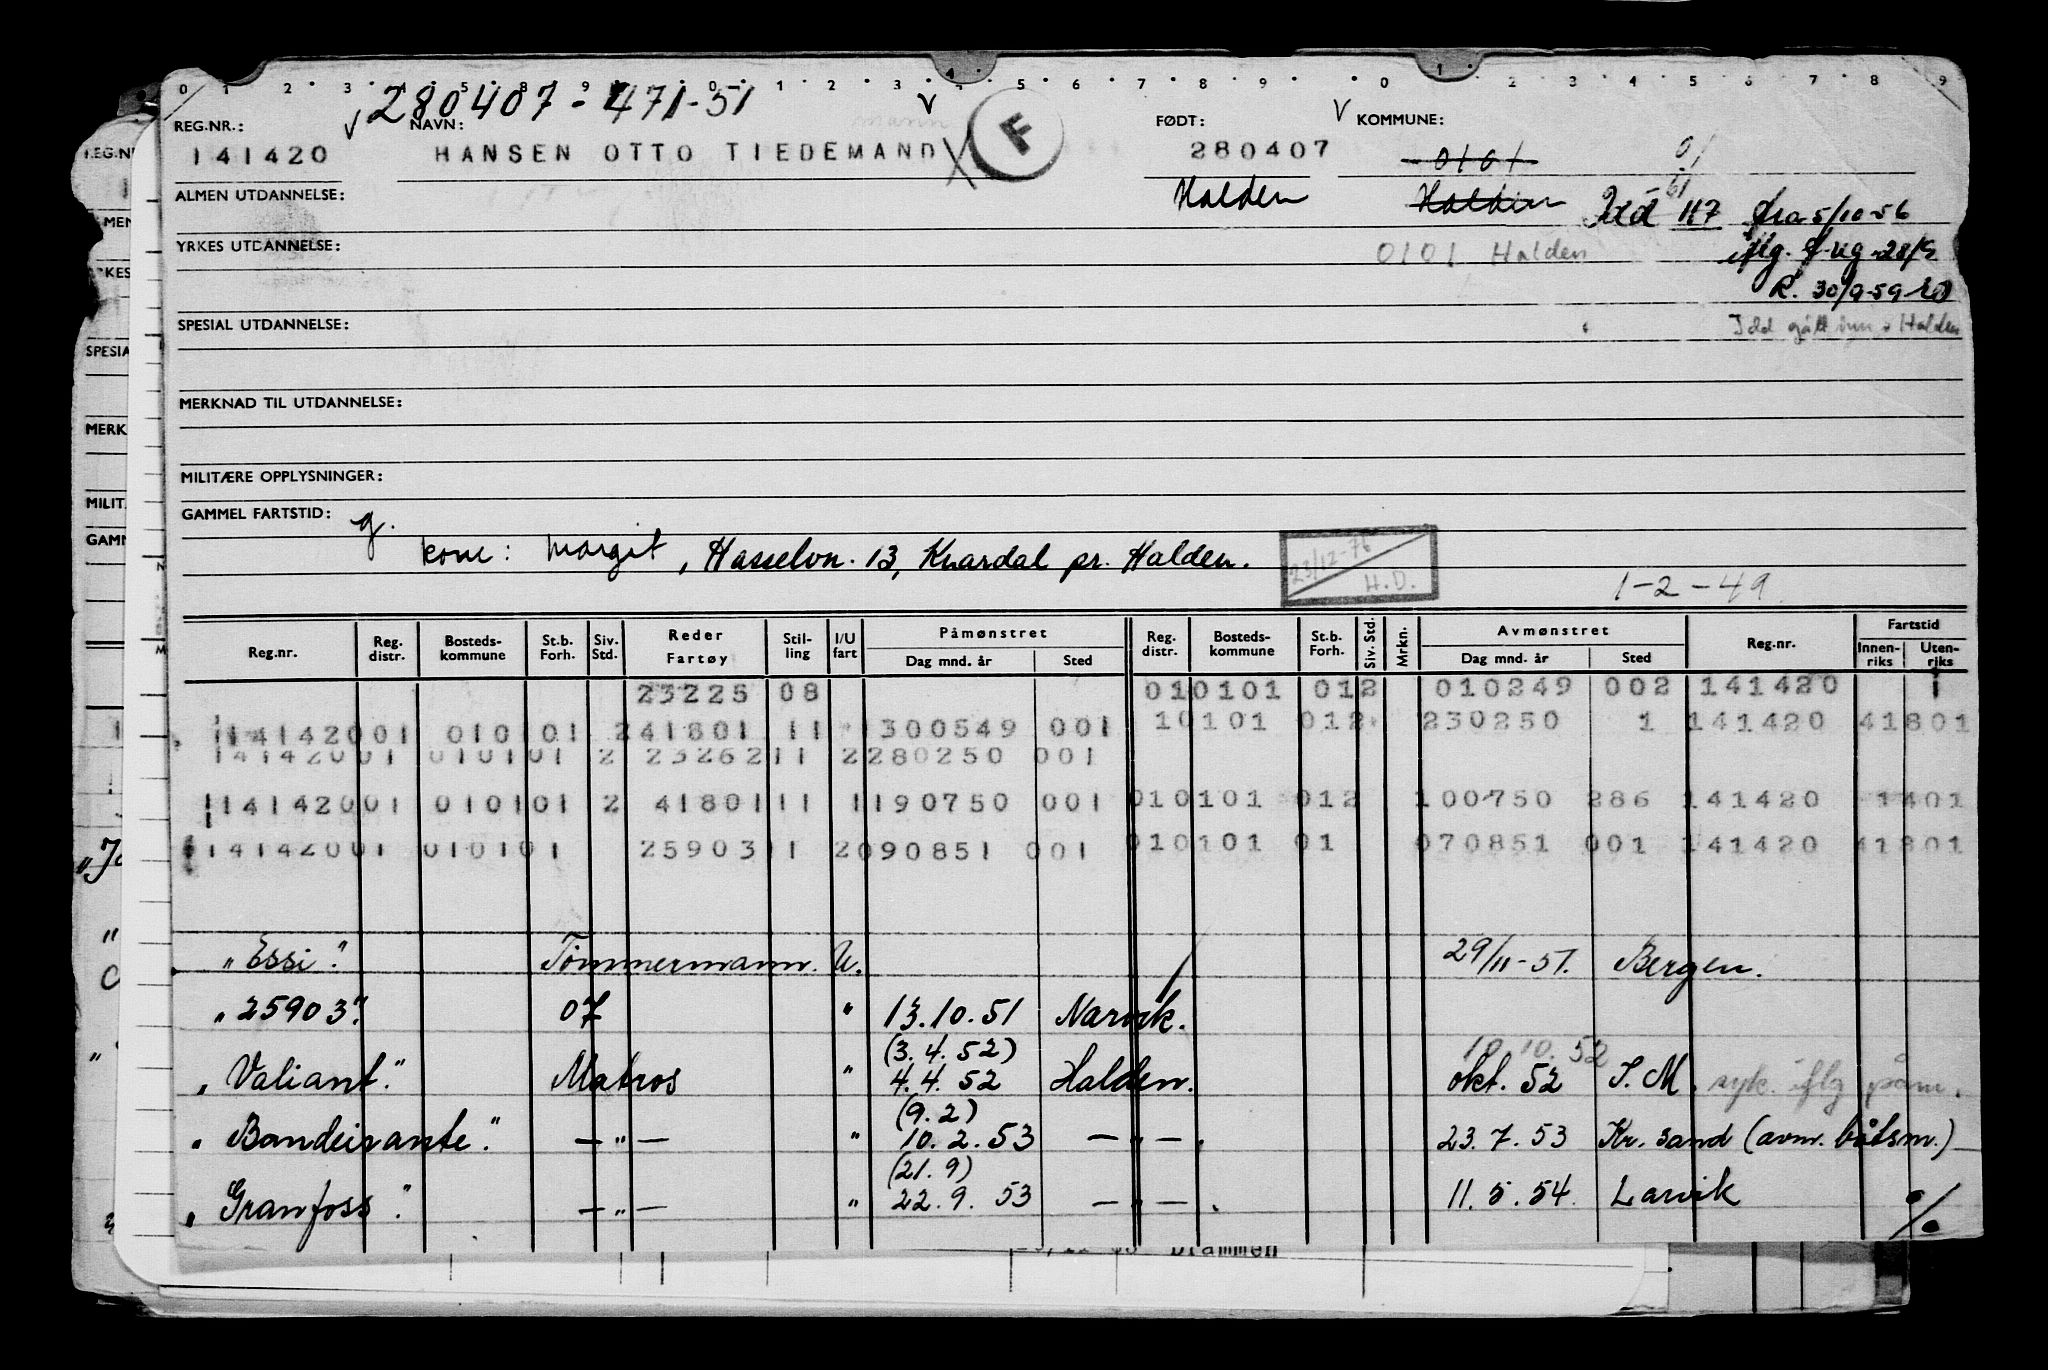 0 1 2 3 4 5 8 9 0 1 2 3 4 5 6 7 8 9 0 1 2 3 4 5 6 7 8 9
280407 - 471-51
REG.NR.: NAVN: FØDT: KOMMUNE:
141420 HANSEN OTTO TIEDEMAND F 280407 0101 01
ALMEN UTDANNELSE: Halden Halden Idd 117 fra 5/10-56
YRKES UTDANNELSE: 0101 Halden iflg.
R. 30/9-59
SPESIAL UTDANNELSE: Idd gått inn i Halden
MERKNAD TIL UTDANNELSE:
MILITÆRE OPPLYSNINGER:
GAMMEL FARTSTID: g.
kone: Margit, Hasselvn. 13, Knardal pr. Halden. 23/12-76 H.D.
1-2-49
Reg.nr. Reg. distr. Bosteds- kommune St.b. Forh. Siv. Std. Reder Fartøy Stil- ling I/U fart Påmønstret Dag mnd. år Sted Reg. distr. Bosteds- kommune St.b. Forh. Siv. Std. Mrkn. Avmønstret Dag mnd. år Sted Reg.nr. Fartstid Innen- riks Uten- riks
23225 08 010101 012 010249 002 141420 1
14142001 010101 241801 11 300549 001 10101 012 230250 1 141420 41801
14142001 010101 2 23262 11 2280250 001
14142001 010101 2 41801 11 1190750 001 010101 012 100750 286 141420 1401
14142001 010101 25903 11 2090851 001 010101 01 070851 001 141420 41801
"Essi". Tømmermann. U. 29/11-51. Bergen.
"25903". 07 " 13.10.51 Narvik.
(3.4.52) 10.10.52
"Valiant." Matros " 4.4.52 Halden. okt. 52 S.M. syk. iflg påm.
(9.2)
"Bandeirante". — " — " 10.2.53 — " — . 23.7.53 Kr. sand (avm. båtsm.)
(21.9)
"Granfoss". — " — " 22.9.53 — " — . 11.5.54. Larvik
%
Drammen